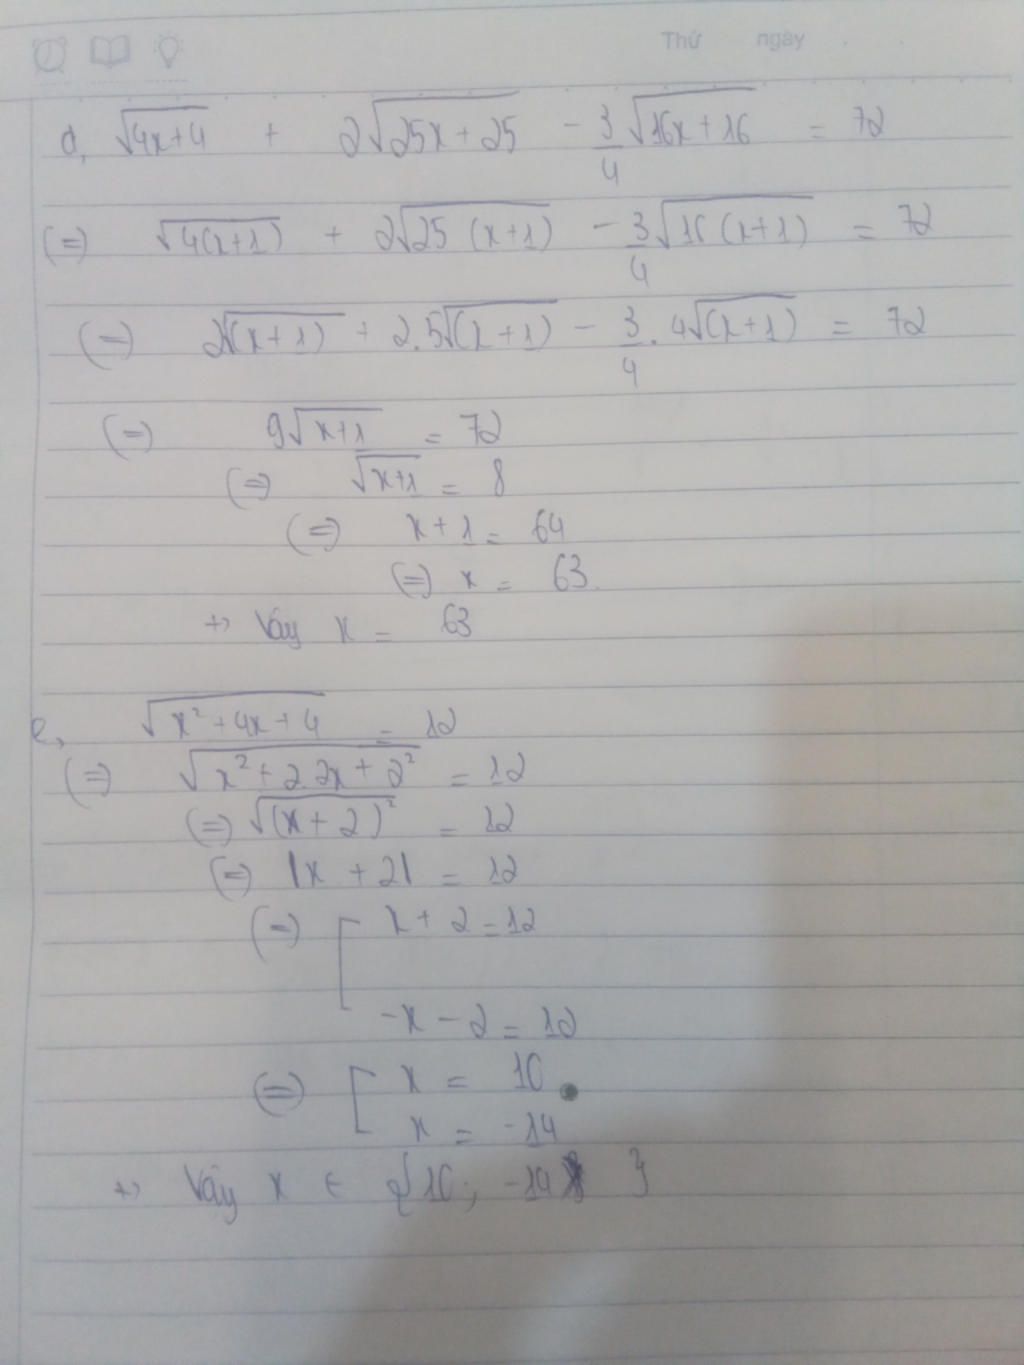 Thứ ngày
d, √(4x+4) + 2√(25x+25) - 3/4 √(16x+16) = 72
(=) √(4(x+1)) + 2√(25 (x+1)) - 3/4 √(16 (x+1)) = 72
(=) 2√(x+1) + 2.5√(x+1) - 3/4 . 4√(x+1) = 72
(=) 9√(x+1) = 72
(=) √(x+1) = 8
(=) x+1 = 64
(=) x = 63.
+) Vậy x = 63
e, √(x²+4x+4) = 12
(=) √(x²+2.2x+2²) = 12
(=) √((x+2)²) = 12
(=) |x+2| = 12
(=) [ x+2 = 12
-x-2 = 12
(=) [ x = 10
x = -14
+) Vậy x ∈ {10; -14 }